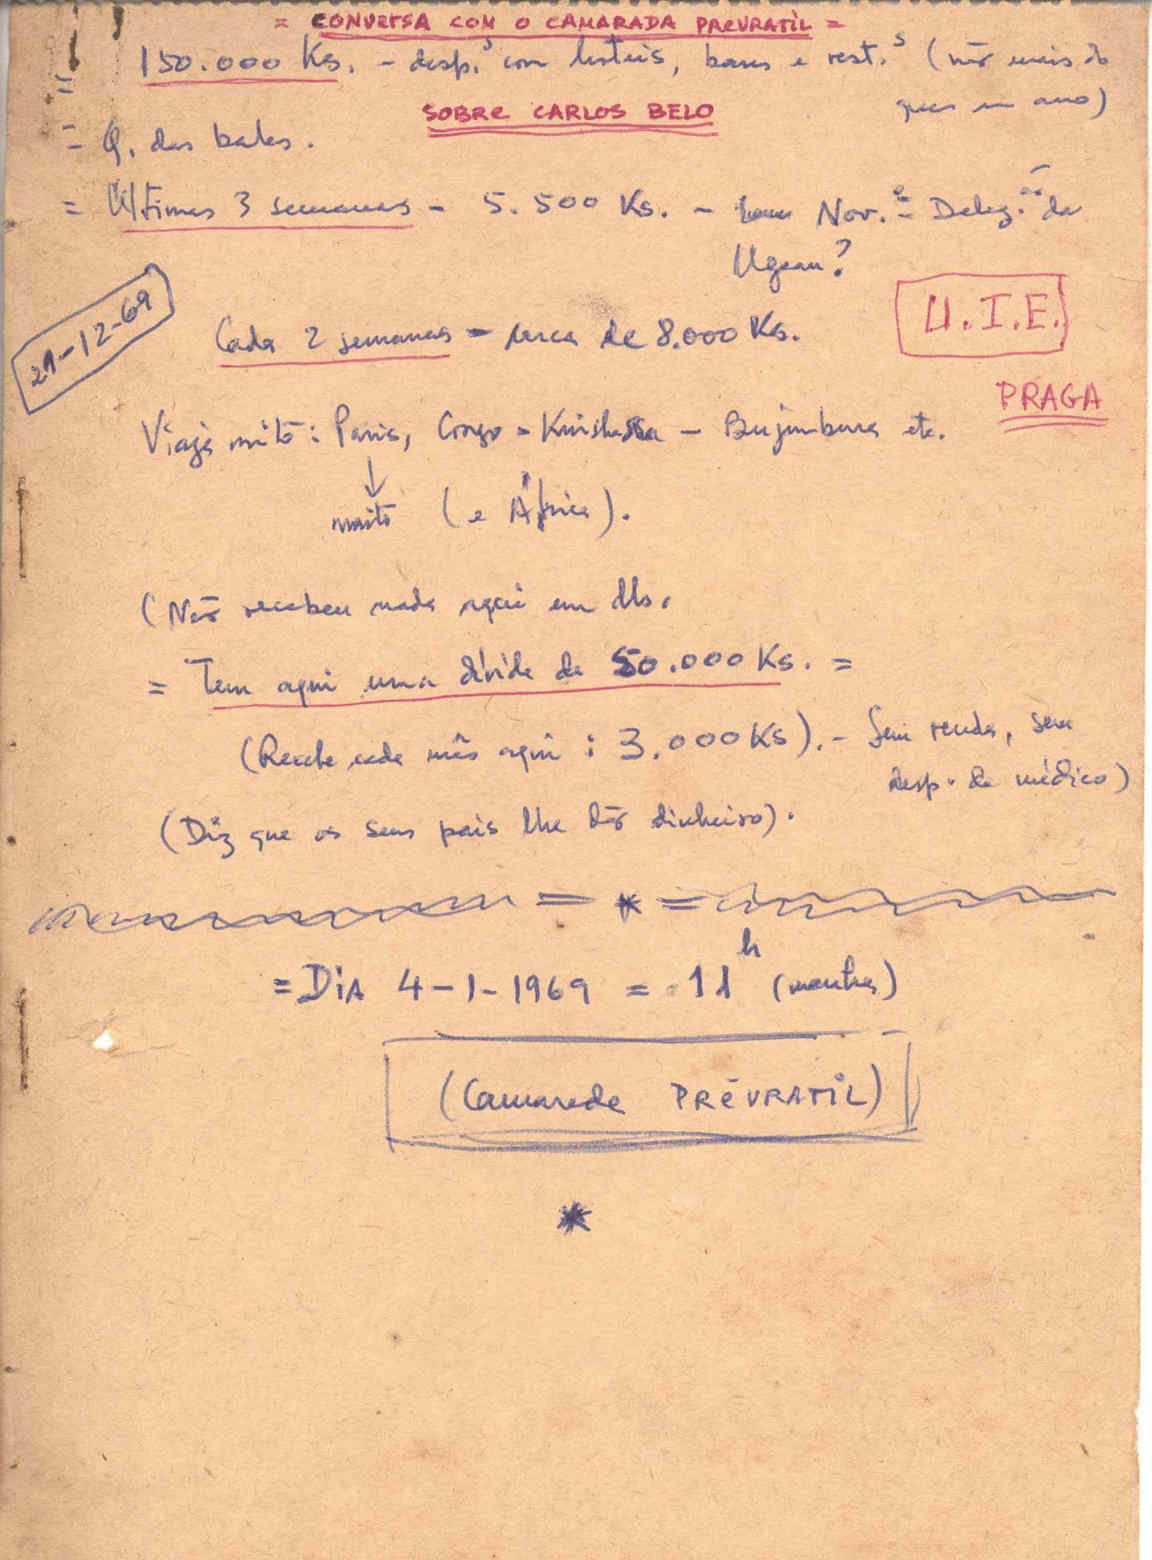 = CONVERSA COM O CAMARADA PREVRATIL =
150.000 Ks. - desp.s com hoteis, bares e rest.s (não mais do
que um ano)
SOBRE CARLOS BELO
= Q. das balas.
= Últimas 3 semanas - 5.500 Ks. - Nov. - Deleg. da
Ugeau?
21-12-69
U.I.E.
Cada 2 semanas = cerca de 8.000 Ks.
PRAGA
Viaja mito: Paris, Congo = Kinshasa - Bujumbura etc.
muito (e África).
(Não recebeu nada aqui em
= Tem aqui uma dívida de 50.000 Ks. =
(Recebe cada mês aqui: 3.000 Ks). - Sem renda, sem
desp. de médico)
(Diz que os seus pais lhe dão dinheiro).
= * =
= DIA 4-1-1969 = 11h (manhã)
(Camarada PRÉVRATIL)
*